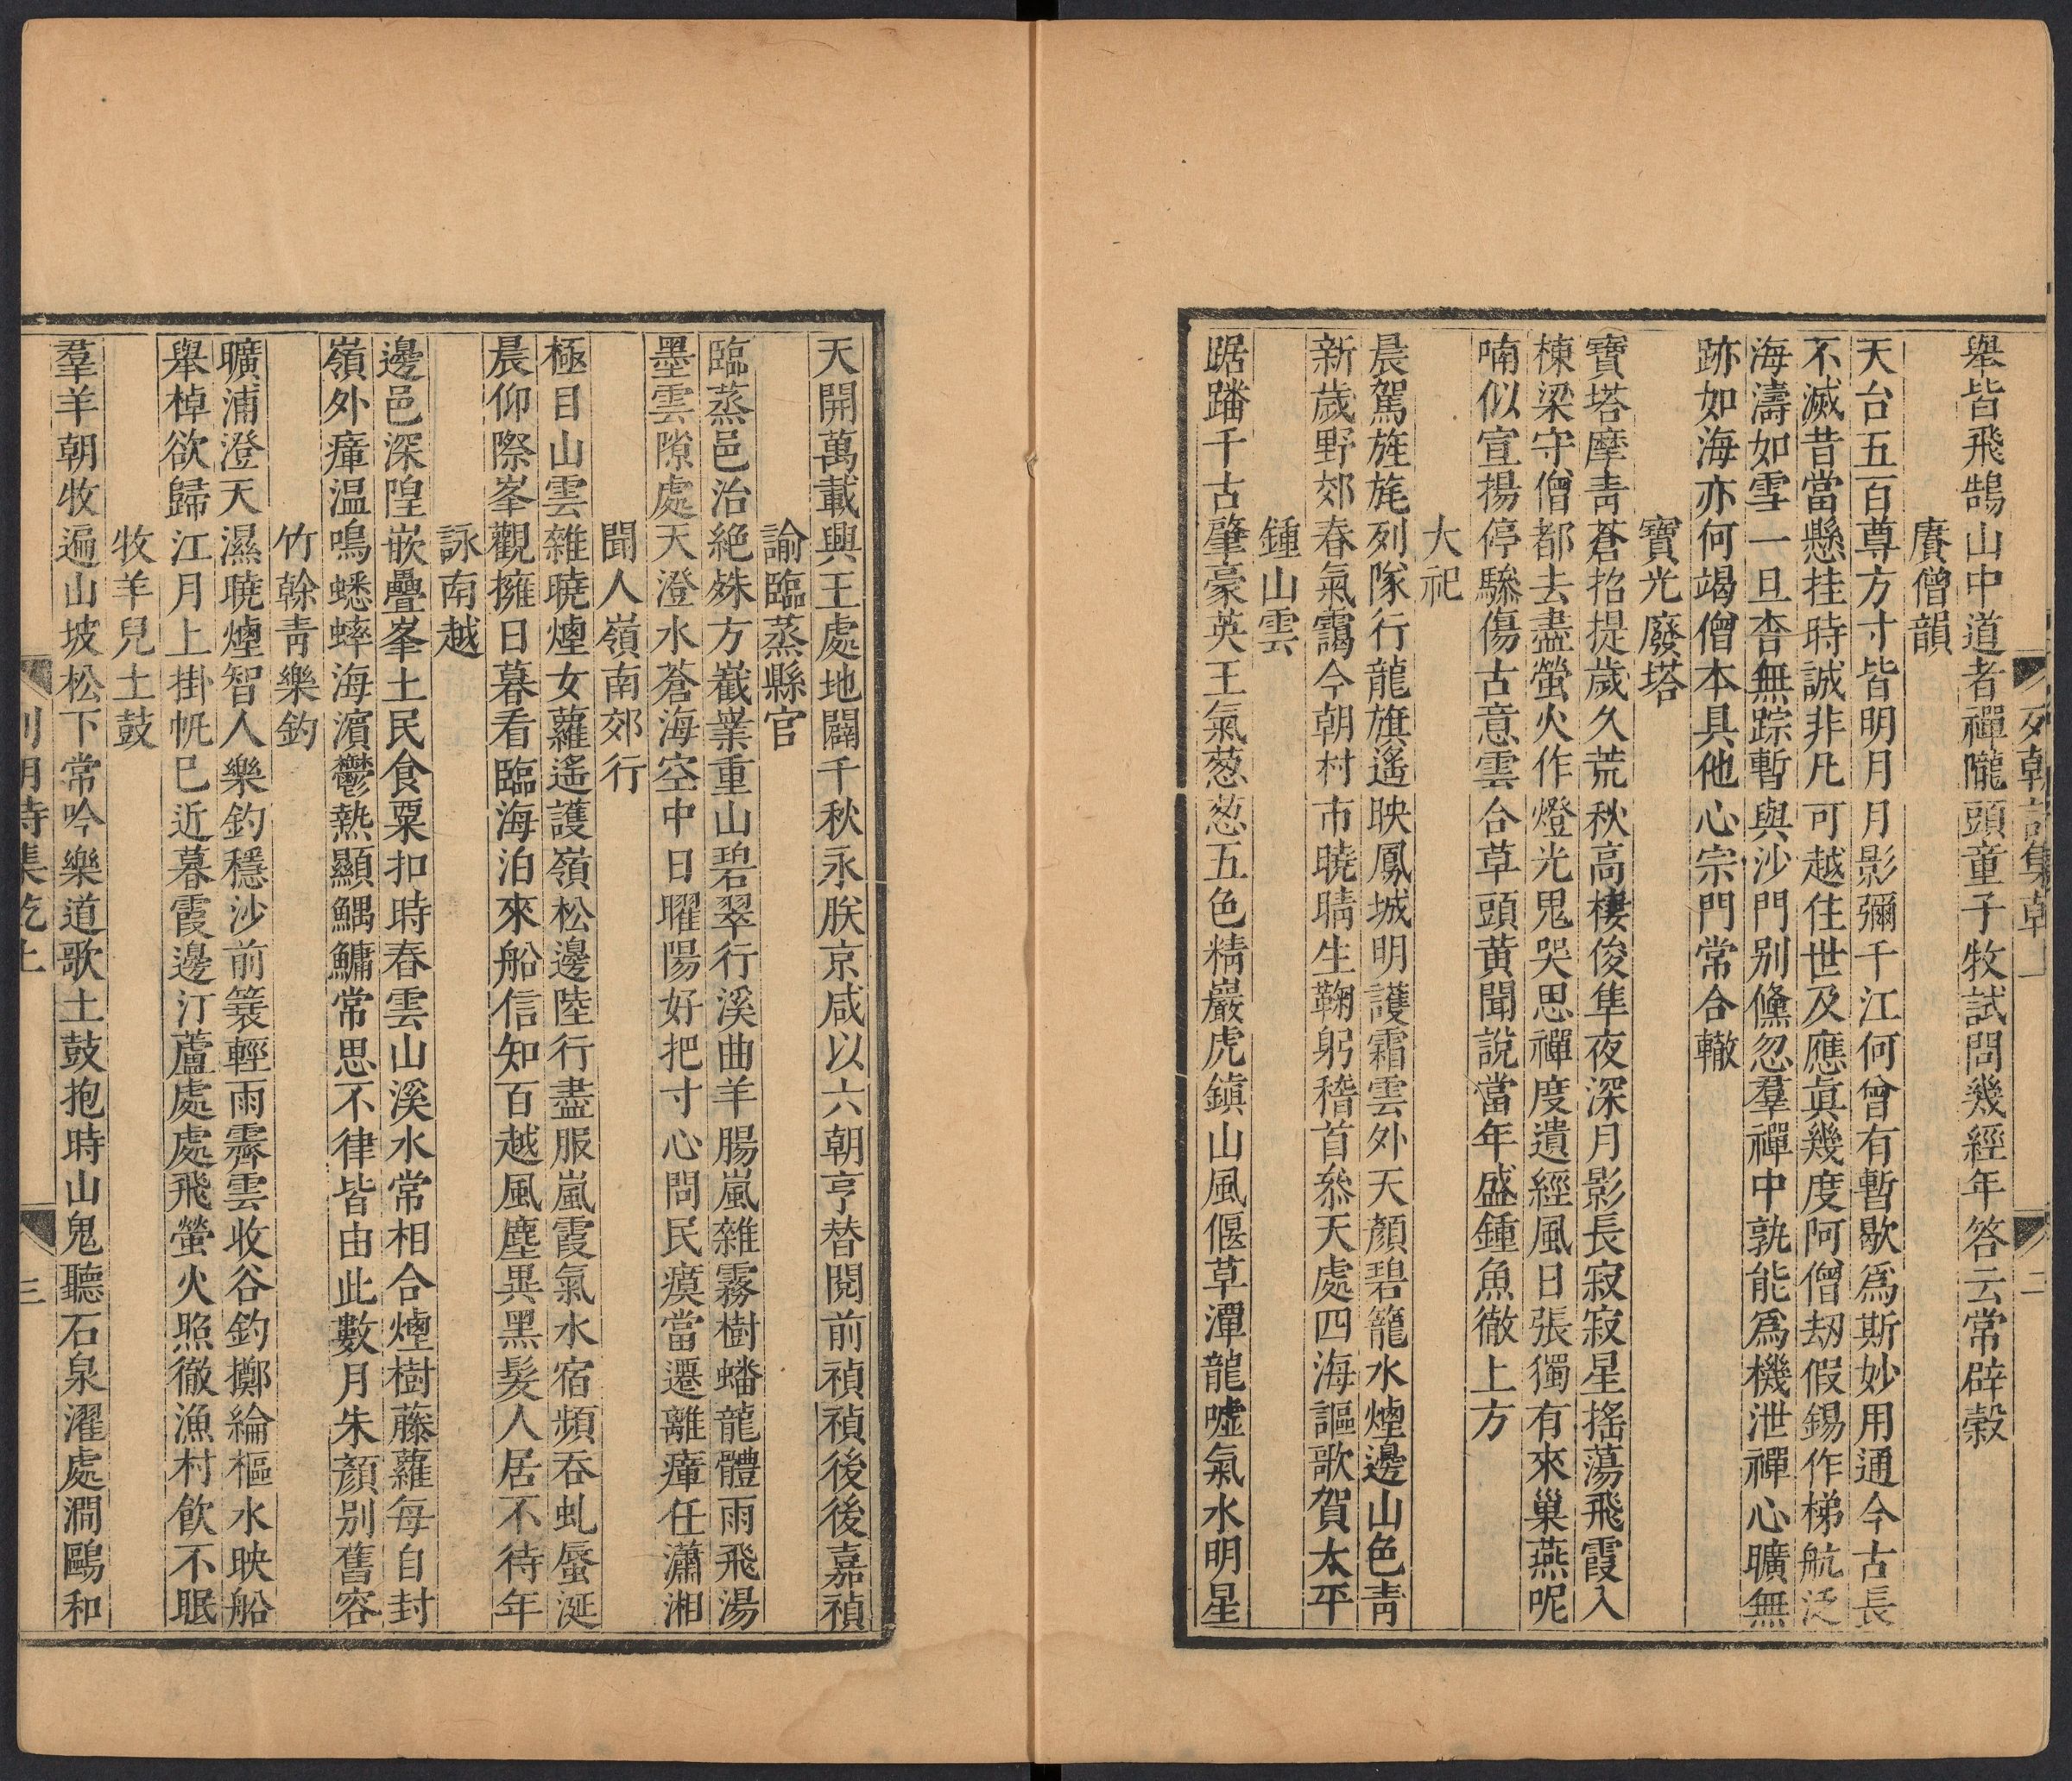 舉皆飛鵠山中道者禪隴頭童子牧試問幾經年答云常辟糓
賡僧韻
天台五百尊方寸皆明月月影彌千江何曾有暫歇爲斯妙用通今古長
不滅昔當懸挂時誠非凡可越住世及應眞幾度阿僧刼假錫作梯航泛
海濤如雪一旦杳無踪暫與沙門别儵忽羣禪中孰能爲機泄禪心曠無
跡如海亦何竭僧本具他心宗門常合轍
寶光廢塔
寶塔摩青蒼招提歲久荒秋高棲俊隼夜深月影長寂寂星搖蕩飛霞入
棟梁守僧都去盡螢火作燈光鬼哭思禪度遺經風日張獨有來巢燕呢
喃似宣揚停驂傷古意雲合草頭黄聞說當年盛鍾魚徹上方
大祀
晨駕旌旄列隊行龍旗遙映鳳城明護霜雲外天顏碧籠水煙邊山色青
新歲野郊春氣靄今朝村市曉晴生鞠躬稽首叅天處四海謳歌賀太平
鍾山雲
踞蹯千古肇豪英王氣葱葱五色精巖虎鎮山風偃草潭龍噓氣水明星
天開萬載興王處地闢千秋永朕京咸以六朝亨替閱前禎禎後後嘉禎
諭臨蒸縣官
臨蒸邑治絶殊方嶻嶪重山碧翠行溪曲羊腸嵐雜霧樹蟠龍體雨飛湯
墨雲隙處天澄水蒼海空中日曜陽好把寸心問民瘼當遷離瘴任瀟湘
聞人嶺南郊行
極目山雲雜曉煙女蘿遙護嶺松邊陸行盡服嵐霞氣水宿頻吞虬蜃涎
晨仰際峯觀擁日暮看臨海泊來船信知百越風塵異黑髮人居不待年
詠南越
邊邑深隍嵌疊峯土民食粟扣時舂雲山溪水常相合煙樹藤蘿每自封
嶺外瘴温鳴蟋蟀海濵鬱熱顯鰅鱅常思不律皆由此數月朱顏别舊容
竹幹青樂釣
曠浦澄天濕曉煙智人樂釣穩沙前簑輕雨霽雲收谷釣擲綸樞水映船
舉棹欲歸江月上掛帆已近暮霞邊汀蘆處處飛螢火照徹漁村飮不眠
牧羊兒土鼓
羣羊朝牧遍山坡松下常吟樂道歌土鼓抱時山鬼聽石泉濯處澗鷗和
三